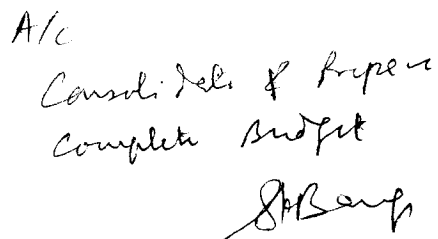 A/c
Consolidate & Prepare
Complete Budget